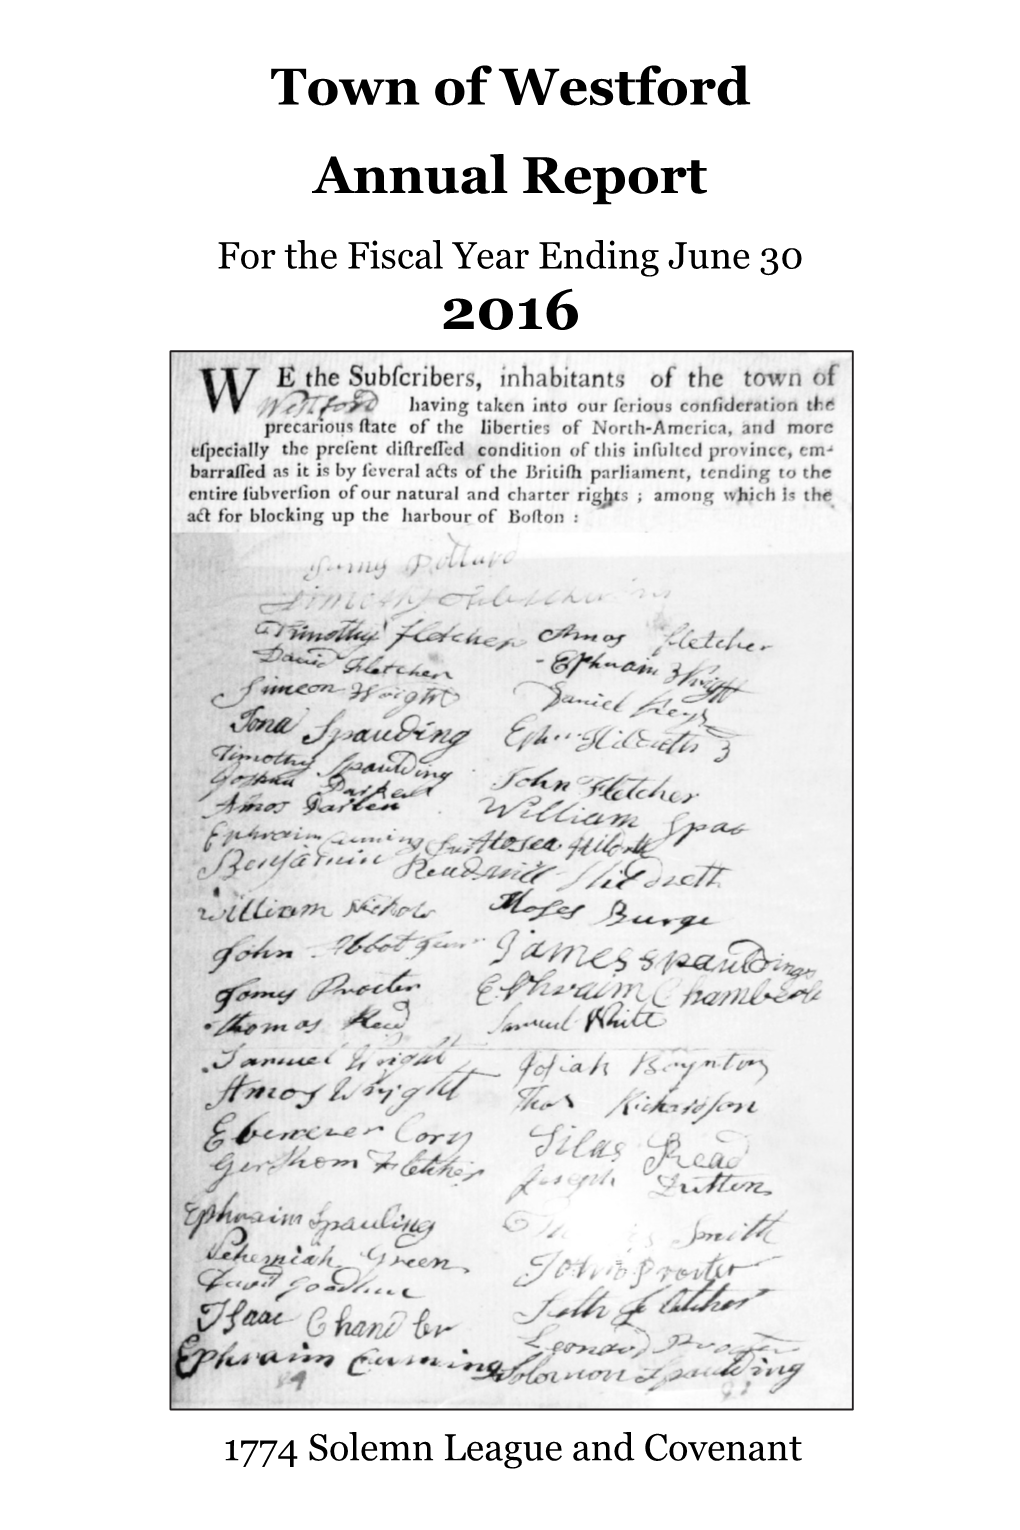 Town of Westford
Annual Report
For the Fiscal Year Ending June 30
2016
WE the Subſcribers, inhabitants of the town of
Westford having taken into our ſerious conſideration the
precarious ſtate of the liberties of North-America, and more
eſpecially the preſent diſtreſſed condition of this inſulted province, em-
barraſſed as it is by ſeveral acts of the Britiſh parliament, tending to the
entire ſubverſion of our natural and charter rights ; among which is the
act for blocking up the harbour of Boſton :
Pollard
Timothy Fletcher Amos Fletcher
David Fletcher Ephraim Wright
Simeon Wright Daniel
Jona Spaulding Hildreth 3
Timothy Spaulding John Fletcher
Joshua Parker
Amos Parlin William Spa
Ephraim Cuming Hosea
Benjamin Read Will Hildreth
William Nichols Moſes Burge
John Abbot Jun James spaulding
James Procter Ephraim Chamberl
Thomas Read Samuel White
Samuel Wright Joſiah Boynton
Amos Wright Thos Richardſon
Ebenezer Cory Silas Read
Gershom Fletcher Joseph Dutton
Ephraim Spauling Smith
Nehemiah Green John Procter
David Goodhue
Iſaac Chandler Seth Fletcher
Leonard Procter
Ephraim Cumings Solomon Spaulding
1774 Solemn League and Covenant